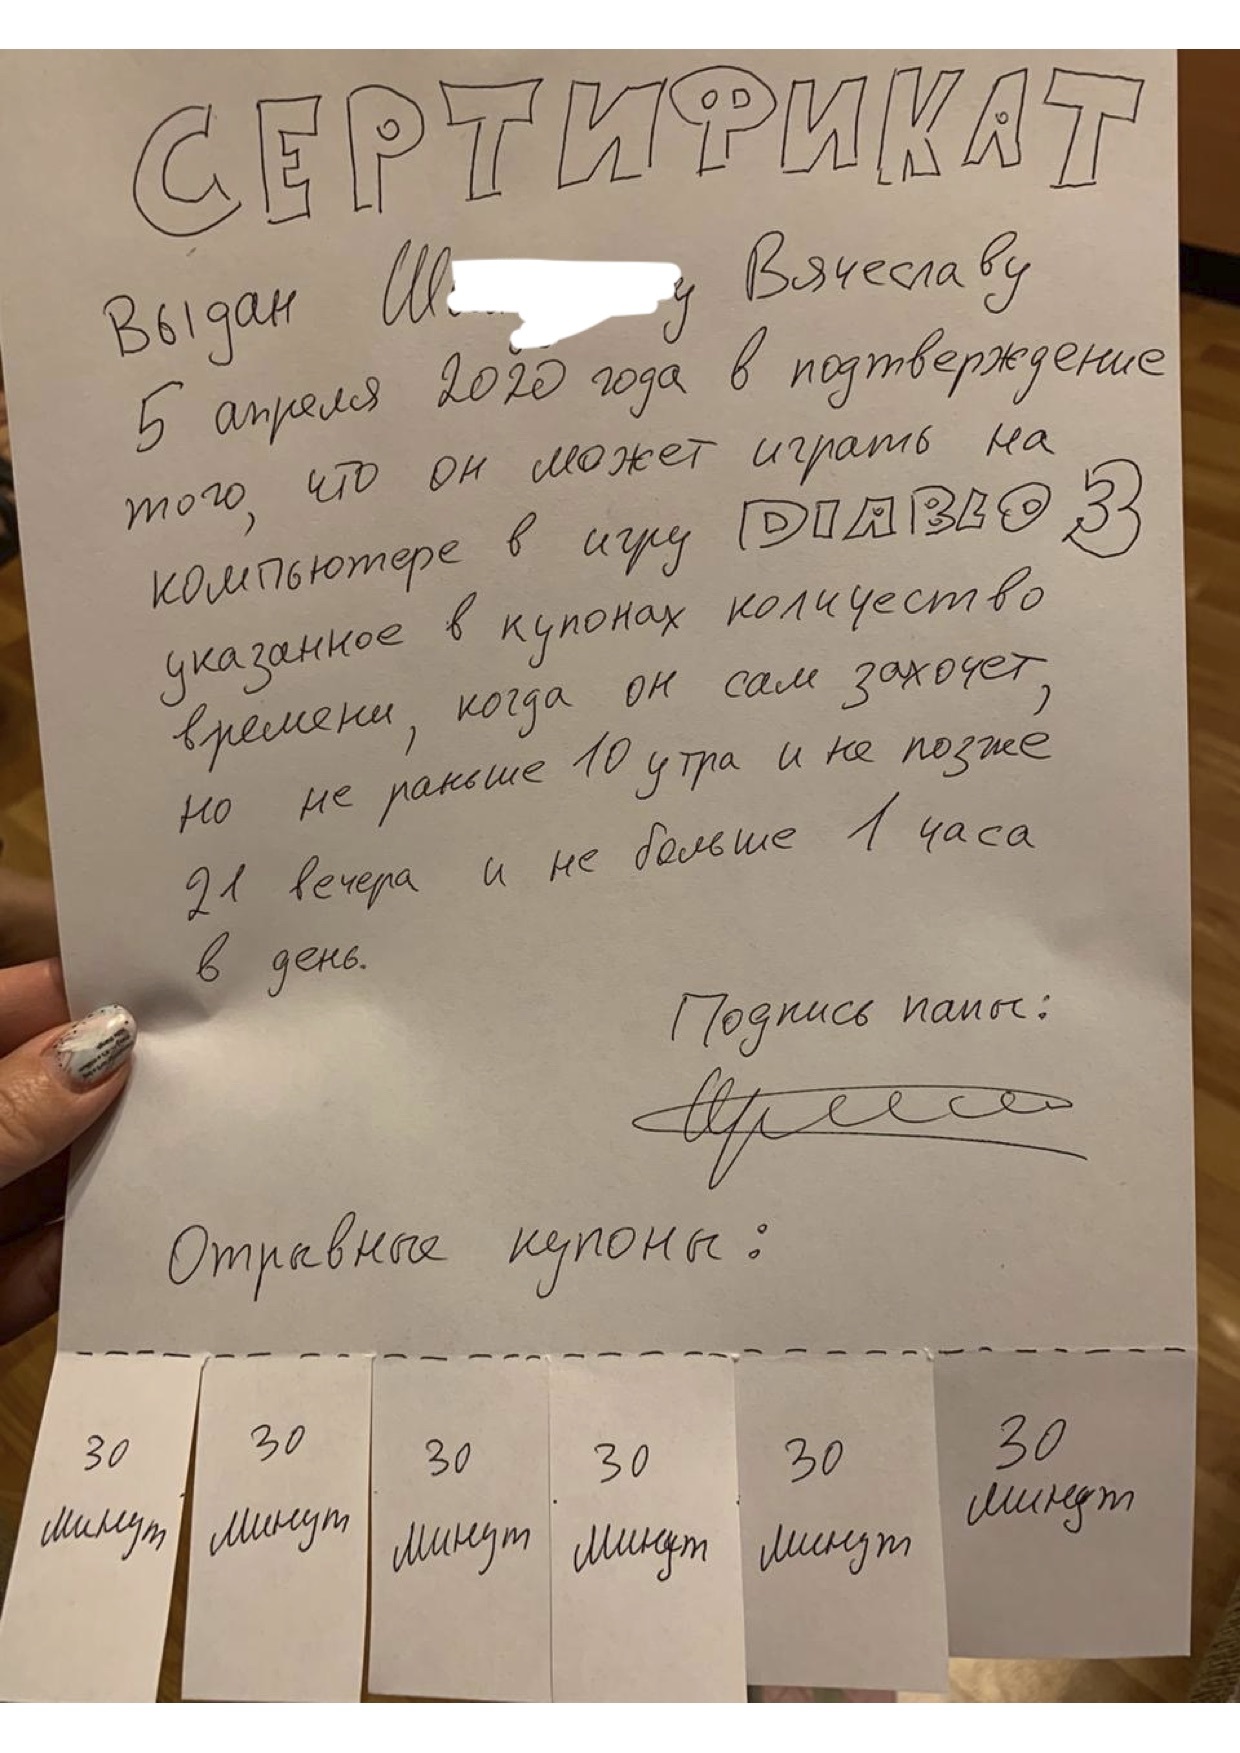 СЕРТИФИКАТ
Выдан Вячеславу
5 апреля 2020 года в подтверждение
того, что он может играть на
компьютере в игру DIABLO 3
указанное в купонах количество
времени, когда он сам захочет,
но не раньше 10 утра и не позже
21 вечера и не больше 1 часа
в день.
Подпись папы:
Отрывные купоны:
30 минут
30 минут
30 минут
30 минут
30 минут
30 минут